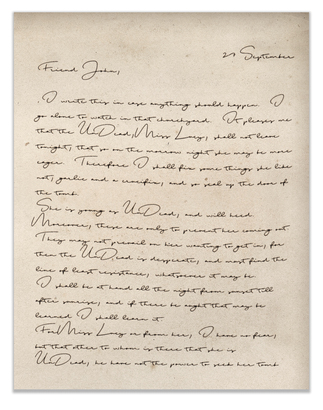 27 September
Friend John,
I write this in case anything should happen. I
go alone to watch in that churchyard. It pleases me
that the UnDead, Miss Lucy, shall not leave
tonight, that so on the morrow night she may be more
eager. Therefore I shall fix some things she like
not, garlic and a crucifix, and so seal up the door of
the tomb.
She is young as UnDead, and will heed.
Moreover, these are only to prevent her coming out.
They may not prevail on her wanting to get in, for
then the UnDead is desperate, and must find the
line of least resistance, whatsoever it may be.
I shall be at hand all the night from sunset till
after sunrise, and if there be aught that may be
learned I shall learn it.
For Miss Lucy or from her, I have no fear,
but that other to whom is there that she is
UnDead, he have not the power to seek her tomb